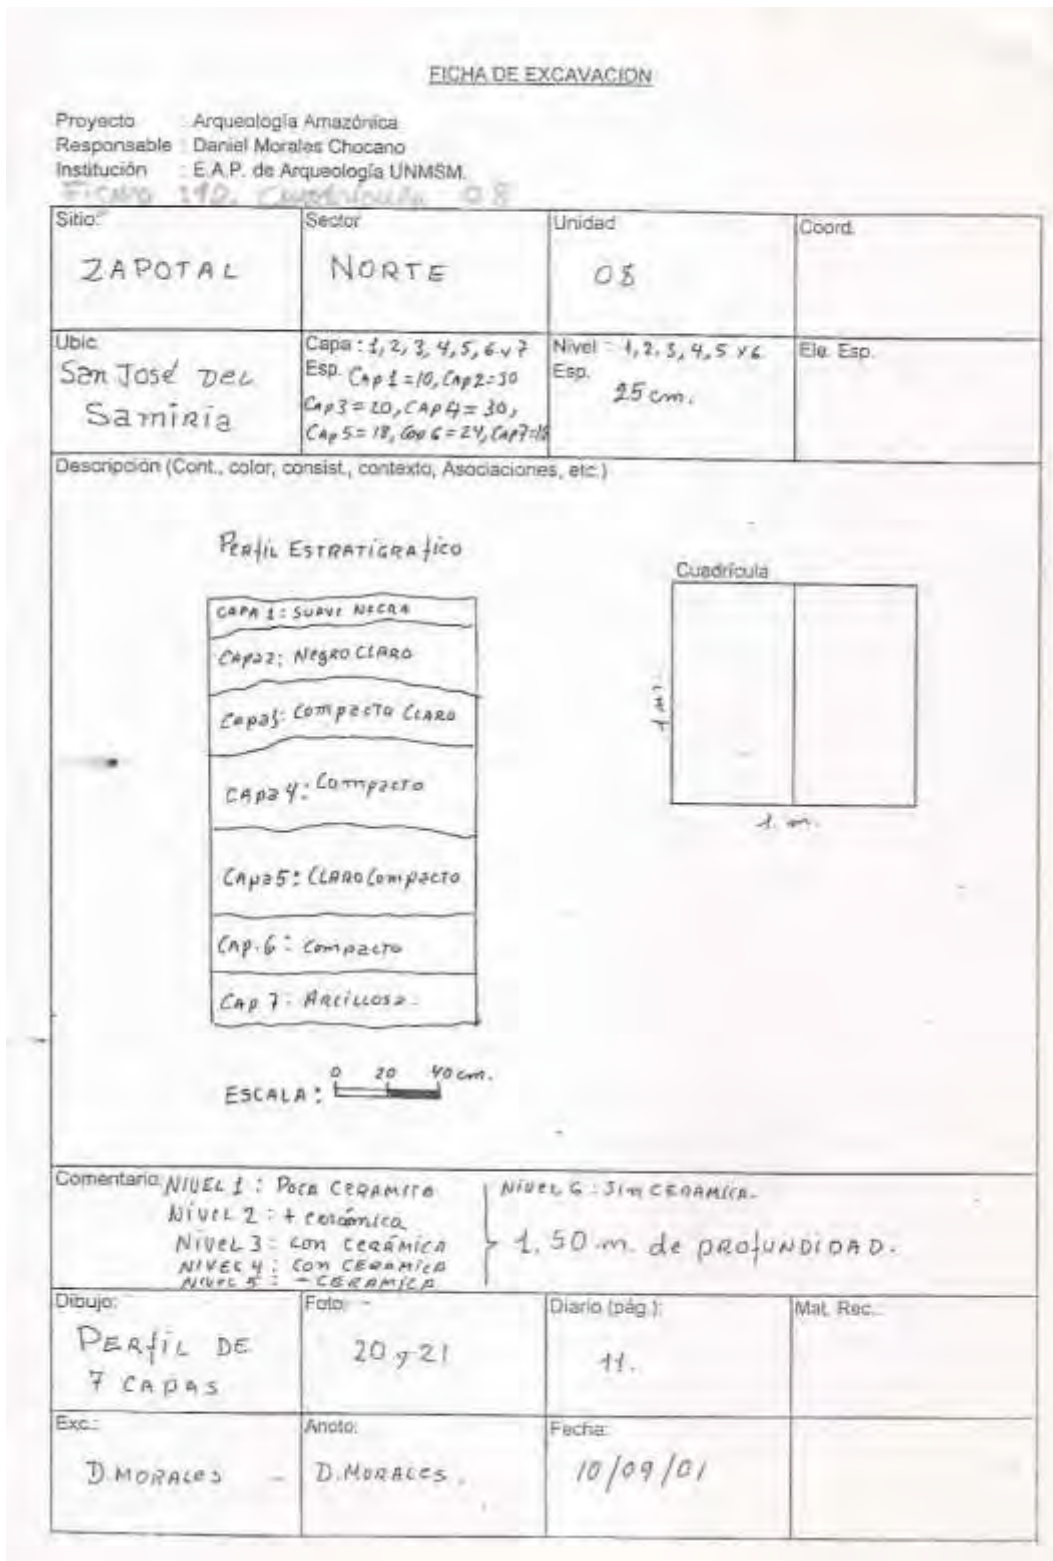 FICHA DE EXCAVACION
Proyecto : Arqueología Amazónica
Responsable : Daniel Morales Chocano
Institución : E.A.P. de Arqueología UNMSM.
Cuadrícula 08
Sitio:
ZAPOTAL
Sector
NORTE
Unidad
08
Coord.
Ubic.
San José DEL
Samiria
Capa : 1, 2, 3, 4, 5, 6 y 7
Esp. Cap 1 = 10, Cap 2 = 30
Cap 3 = 20, CAP 4 = 30,
CAp 5 = 18, Cap 6 = 24, CAp 7 = 18
Nivel : 1, 2, 3, 4, 5 y 6
Esp.
25 cm.
Ele. Esp.
Descripción (Cont., color, consist., contexto, Asociaciones, etc.)
Perfil ESTRATIGRAfico
CAPA 1: SUAVE NEGRA
CApa 2: Negro CLARO
Capa 3: Compacta CLARO
CApa 4: Compacto
CApa 5: CLARO Compacto
CAp. 6: Compacto
CAp 7: ARCILLOSA.
ESCALA: 0 20 40 cm.
Cuadrícula
1 m.
1. m.
Comentario: NIVEL 1 : POCA CERAMICA
NIVEL 2 : + cerámica
NIVEL 3 : con CERÁMICA
NIVEL 4 : CON CERAMICA
NIVEL 5 : - CERAMICA
NIVEL 6 : SIN CERAMICA.
1.50 m. de PROfUNDIDAD.
Dibujo:
PERfiL DE
7 CAPAS
Foto: -
20 y 21
Diario (pág.):
11.
Mat. Rec.:
Exc.:
D. MORALES -
Anoto:
D. MORALES.
Fecha:
10/09/01